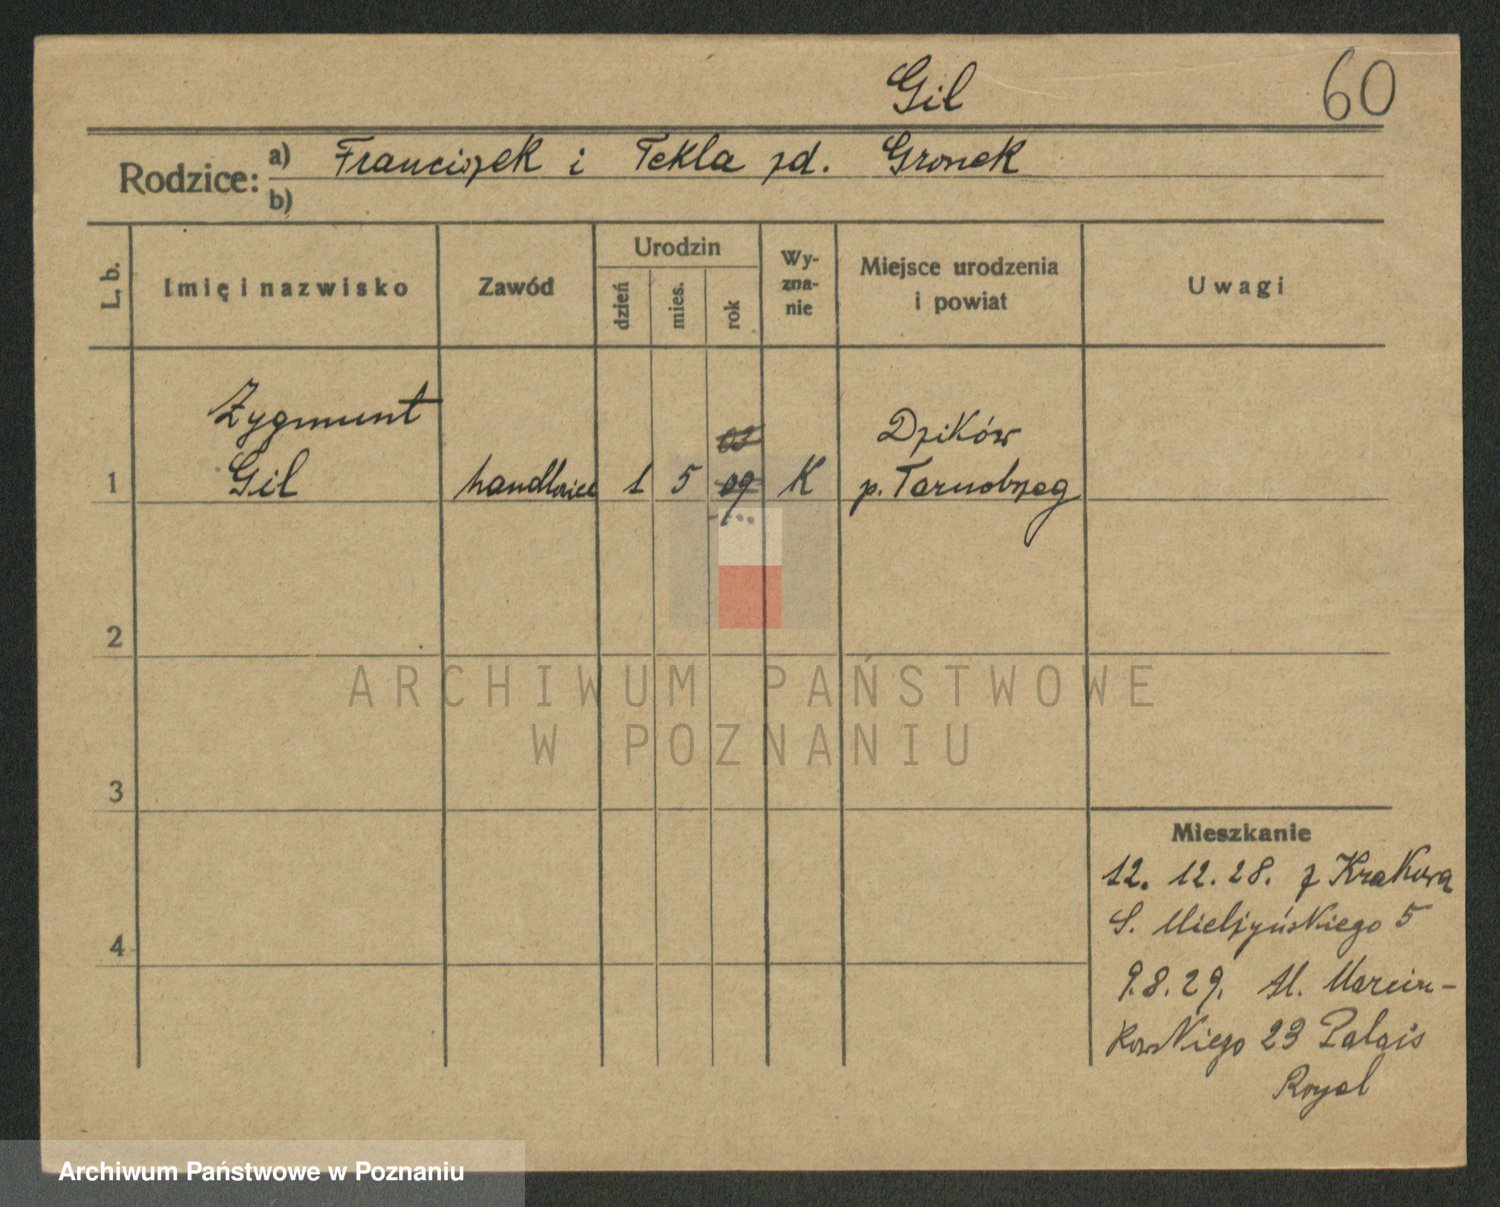 Gil
60
Rodzice: a) Franciszek i Tekla zd. Gronek
b)
L. b.
Imię i nazwisko
Zawód
Urodzin
dzień
mies.
rok
Wy-
zna-
nie
Miejsce urodzenia
i powiat
Uwagi
Zygmunt
03
Dzików
1 Gil handlowiec 1 5 09 K p. Tarnobrzeg
2
ARCHIWUM PAŃSTWOWE
W POZNANIU
3
Mieszkanie
12. 12. 28. z Krakowa
S. Mielżyńskiego 5
4
9. 8. 29. Al. Marcin-
kowskiego 23 Palais
Royal
Archiwum Państwowe w Poznaniu